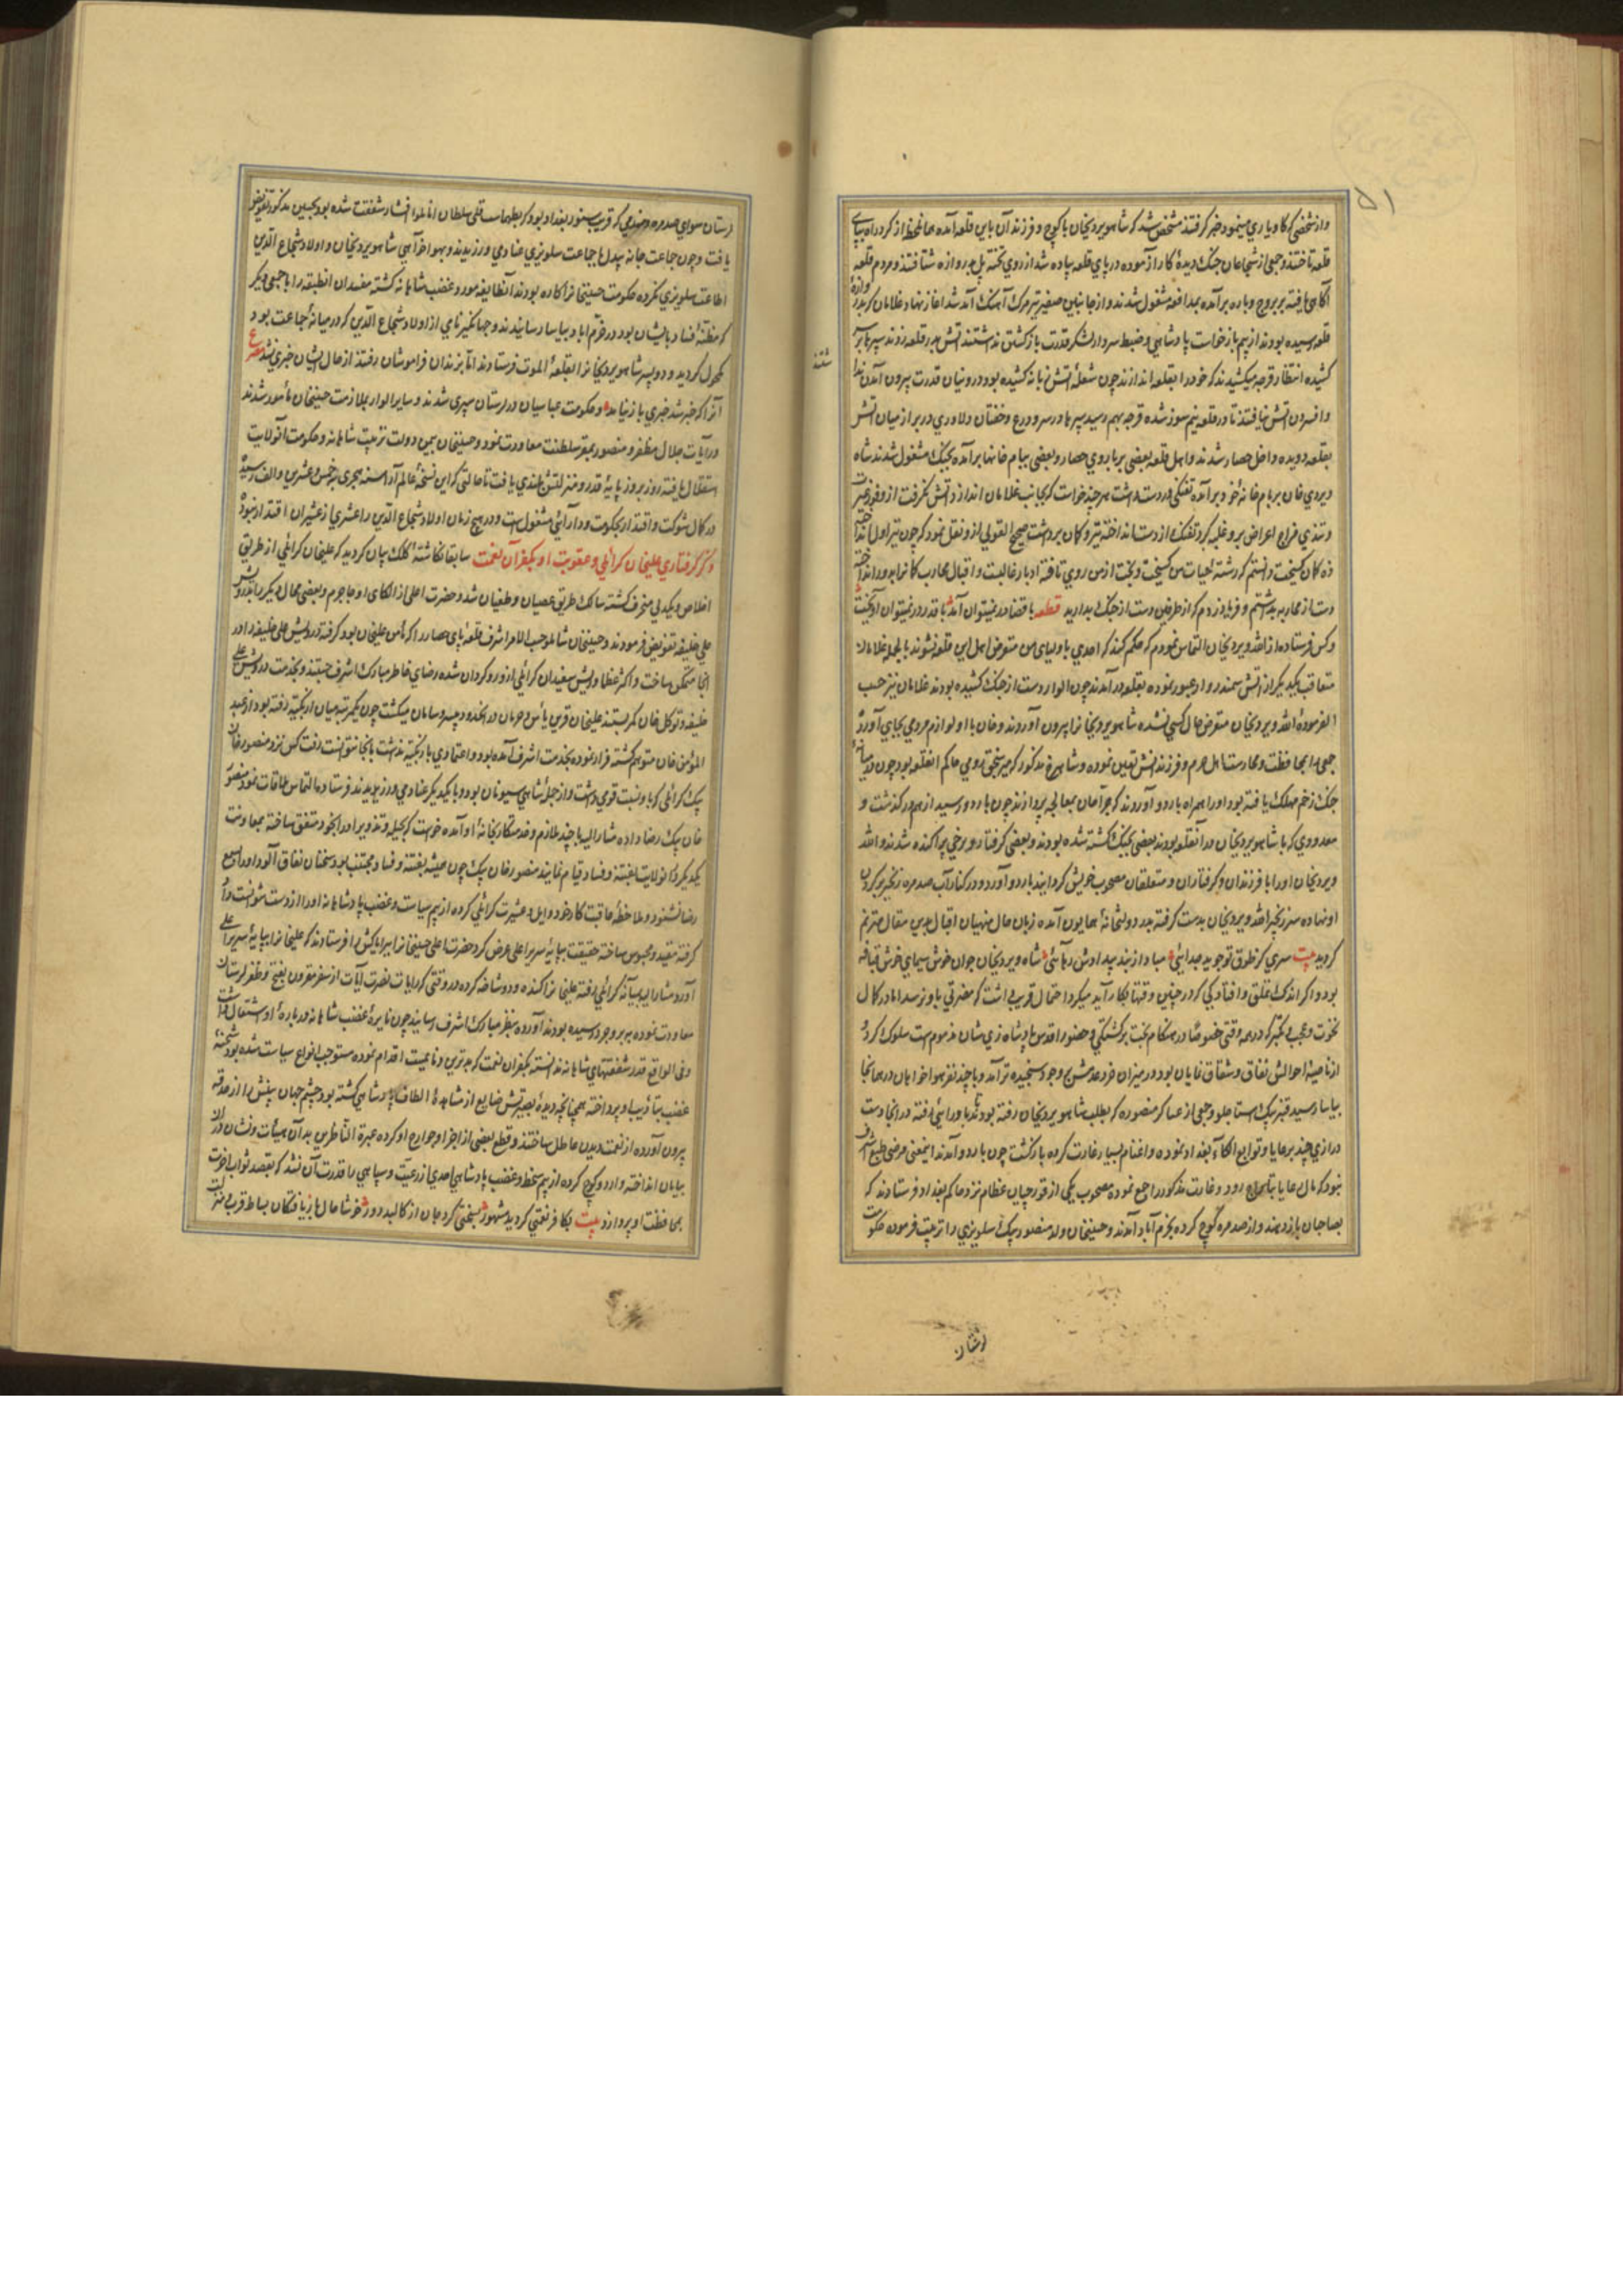 واز شخصی که کاوپاری مینمود خبر گرفتند مشخص شد که شاهویردیخان با کوچ و فرزندان باین قلعه آمده همان لحظه از گرد راه بپای
قلعه تاختند و جمعی از شجاعان جنک دیده کار آزموده در پای قلعه پیاده شده از روی تخته پل بدروازه شتافتند و مردم قلعه
آگاهی یافته بر بروج و باره برآمده بمدافعه مشغول شدند و از جانبین صفیر تیر مرک آهنک آمد شد آغاز نهاد و غلامان که بدروازه
قلعه رسیده بودند از بیم بازخواست پادشاهی و ضبط سردار لشکر قدرت بازگشتن نداشتند آتش بدر قلعه زدند سپرها بر سر
کشیده انتظار فرجه میکشیدند که خود را بقلعه اندازند چون شعله آتش زبانه کشیده بود درونیان قدرت بیرون آمدن
و افسردن آتش نیافتند تا در قلعه نیم سوز شده فرجه بهم رسید سپرها در سر و درع و خفتان دلاوری در بر از میان آتش
بقلعه دویده داخل حصار شدند و اهل قلعه بعضی بر باروی حصار و بعضی ببام خانها برآمده بجنک مشغول شدند شاه
ویردی خان بر بام خانه خود برآمده تفنکی در دست داشت هر چند خواست که بجانب غلامان اندازد آتش نگرفت از وفور غیرت
و تندی مزاج اعراض برو غلبه کرد تفنک از دست انداخته تیر و کمان برداشت صحیح القولی ازو نقل نمود که چون تیر اول انداختم
زه کمان گسیخت دانستم که رشته حیات من گسیخت و بخت از من روی تافته ادبار غالبست و اقبال محارب کمانرا بدور انداخته
دست از محاربه برداشتم و فریاد زدم که از طرفین دست از جنک بدارید قطعه با قضا در نمیتوان آمد با قدر در نمیتوان آویخت
و کس فرستاده از الله ویردیخان التماس نمودم که حکم کند که احدی با ولیای من متعرض اهل این قلعه نشوند بالجمله غلامان
متعاقب یکدیگر از آتش سمندروار عبور نموده بقلعه درآمدند چون الوار دست از جنک کشیده بودند غلامان نیز حسب
الفرموده الله ویردیخان متعرض حال کسی نشده شاهویردیخانرا بیرون آوردند و خان با او لوازم مردمی بجای آورده
جمعی را بمحافظت و محارست اهل حرم و فرزندانش تعیین نموده و شاهرخ مذکور که میر سنجق رومی حاکم آنقلعه بود چون در میانه
جنک زخم مهلک یافته بود او را همراه باردو آوردند که جراحان بمعالجه پردازند چون باردو رسید از هم درگذشت و
معدودی که با شاهویردیخان در آنقلعه بودند بعضی بجنک کشته شده بودند و بعضی گرفتار و برخی پراکنده شدند و الله
ویردیخان او را با فرزندان و گرفتاران و متعلقان مصحوب خویش گردانید باردو آورد و در کنار آب صدمره زنجیر بر گردن
او نهاده سر زنجیر الله ویردیخان بدست گرفته بدر دولتخانه همایون آمده زبان حال منهیان اقبال بدین مقال مترنم
گردید بیت سری کز طوق تو جوید جدایی مبادا از بند بیدادش رهائی شاه ویردیخان جوان خوش سیمای خوش قیافه
بود و اگر اندک تملق و افتادگی که در چنین وقتها بکار آید میکرد احتمال قریب داشت که مضرتی باو نرسد اما در کمال
نخوت و عجب و تکبر که در همه وقتی خصوصا در هنکام نخبت برگشتکی و حضور اقدس پادشاه ذی شان مذموم است سلوک کرد
از ناصیه احوالش نفاق و شقاق نمایان بود در میزان خرد عدمش بر وجود سنجیده تر آمد و با چند نفر هواخواهان در همانجا
بیاسا رسید قنبر بیک استاجلو و جمعی از عساکر منصوره که بطلب شاهویردیخان رفته بودند تا بدورائی رفته در آنجا دست
درازی چند برعایا و توابع الکاء بغداد نموده و اغنام بسیار غارت کرده بازگشت چون باردو آمدند اینمعنی مرضی طبع اشرف
نبود که مال رعایا بتاراج رود و غارت مذکور را جمع نموده مصحوب یکی از قورچیان عظام نزد حاکم بغداد فرستادند که
بصاحبان باز دهند و از صدمره کوچ کرده بخرم آباد آمدند و حسینخان ولد منصور بیک سلویزی را تربیت فرموده حکومت
لرستان
لرستان سوای صدمره و هندمی که قریب سنور بغداد بود که بطهماسب قلی سلطان اناللوا افشار شفقت شده بود بحسین مذکور تفویض
یافت و چون جماعت جانه بیدلها جماعت سلویزی عنادمی ورزیدند و بهواخواهی شاهویردیخان و اولاد شجاع الدین
اطاعت سلویزی نکرده حکومت حسینخانرا کاره بودند آنطایفه مورد غضب شاهانه گشته مفسدان آنطبقه را با جمعی دیگر
که مظنه فساد بایشان بود در خرم اباد بیاسا رسانیدند و جهانگیر نامی از اولاد شجاع الدین که در میانه جماعت بود
مکحول گردید و دو پسر شاهویردیخانرا بقلعه الموت فرستادند اما بزندان فراموشان رفتند از حال ایشان خبری نشد مصرع
آنرا که خبر شد خبری باز نیامد و حکومت عباسیان در لرستان سپری شدند و سایر الوار بملازمت حسینخان مأمور شدند
و رایات جلال مظفر و منصور بمقر سلطنت معاودت نمود و حسینخان بیمن دولت تربیت شاهانه و حکومت آنولایت
استقلال یافته روز بروز پایه قدر و منزلتش بلندی یافت تا حالتی که این نسخه عالم آرا بسنه هجری بخمس و عشرین والف رسیده
در کمال شوکت و اقتدار بحکومت و دارائی مشغول است و در هیچ زمان اولاد شجاع الدین را عشری از عشیران اقتدار نبود
ذکر گرفتاری علیخان کرائلی و عقوبت او بکفران نعمت سابقا نکاشته کلک بیان گردید که علیخان کرائلی از طریق
اخلاص و یکدلی منحرف گشته سالک طریق عصیان و طغیان شد و حضرت اعلی از الکای او جاجرم و بعضی محال دیگر را بدرویش
علی خلیفه تفویض فرمودند و حسینخان شاملو حسب الامر اشرف قلعه پای حصار را که مأمن علیخان بود گرفته درویش علی خلیفه را در
آنجا متمکن ساخت و اکثر عظما و ریش سفیدان کرائلی ازو روگردان شده رضای خاطر مبارک اشرف جستند و بخدمت درویش علی
خلیفه و توکل خان کمر بستند علیخان قرین یأس و حرمان در آنحدود بیسر و سامان میکشت چون یکمرتبه میان ازبکیه رفته بود از عبد
المؤمن خان متوهم گشته فرار نموده بخدمت اشرف آمده بود و اعتمادی بازبکیه نداشت بآنجا نتوانست رفت کس نزد منصورخان
بیک کرائلی که باو نسبت قومی داشت و از جمله شاهی سیونان بود و با یکدیگر عنادمی ورزیدند فرستاده التماس ملاقات نمود منصور
خان بیک رضا داده مشارالیه با چند ملازم و خدمتکار بخانه او آمده خواست که بحیله و تذویر او را بخود متفق ساخته بمعاونت
یکدیگر در آنولایت بفتنه و فساد قیام نمایند منصور خان بیک چون همیشه بفتنه و فساد مجتنب بود سخنان نفاق آلود او را بسمع
رضا نشنود و ملاحظه عاقبت کار خود و ایل و عشیرت کرائلی کرده از بیم سیاست و غضب پادشاهانه او را از دست نتوانست داد
گرفته مقید و محبوس ساخته حقیقت بپایه سریر اعلی عرض کرد حضرت اعلی حسینخانرا فرستادند که علیخانرا بپایه سریر اعلی
آورد مشارالیه بمیانه کرائلی رفته علیخانرا کنده و دوشاخه کرده در وقتی که رایات نصرت آیات از سفر مقرون بفتح و ظفر لرستان
معاودت نموده ببروجرد رسیده بودند آورده بنظر مبارک اشرف رسانید چون نایره غضب شاهانه درباره او اشتعال داشت
و فی الواقع قدر شفقتهای شاهانه ندانسته بکفران نعمت که بدترین ونائمیست اقدام نموده مستوجب انواع سیاست شده بود
غضب بتأدیب او پرداخته همچنانچه دیده بصیرتش ضایع از مشاهده الطاف پادشاهی گشته بود چشم جهان بینش را از حدقه
بیرون آورده از نعمت دیدن عاطل ساختند و قطع بعضی از اجزا و جوارح او کرده عبرة الناظرین بدان هیأت و نشان در آن
بیابان انداخته و اردو کوچ کرده از بیم سخط و غضب پادشاهی احدی از رعیت و سپاهی را قدرت آن نشد که بقصد ثواب اخروی
بمحافظت او پردازد بیت بکافر نعمتی گردید مشهور بسختی کرد جان از کالبد دور خوشا حال بازیافتکان بساط قرب